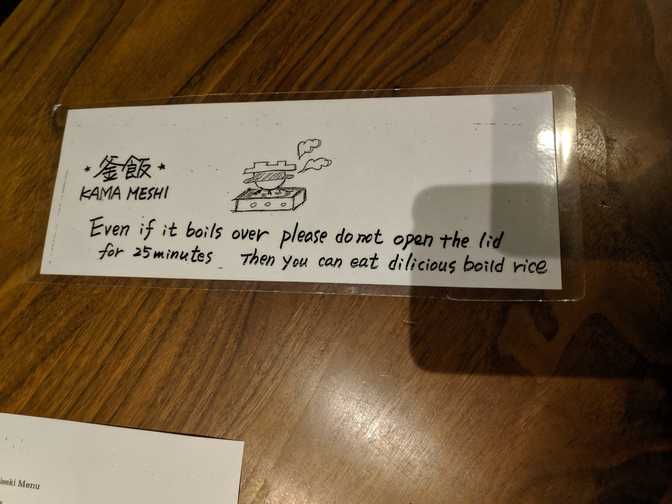 ★ 釜飯 ★
KAMA MESHI
Even if it boils over please do not open the lid
for 25 minutes Then you can eat dilicious boild rice
Menu